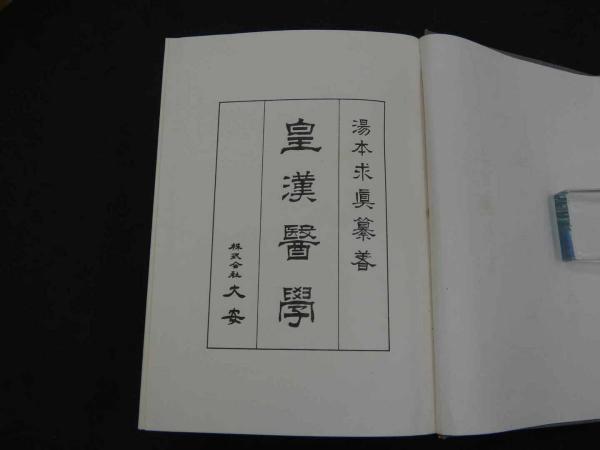 湯本求眞纂著
皇漢醫學
株式会社大安